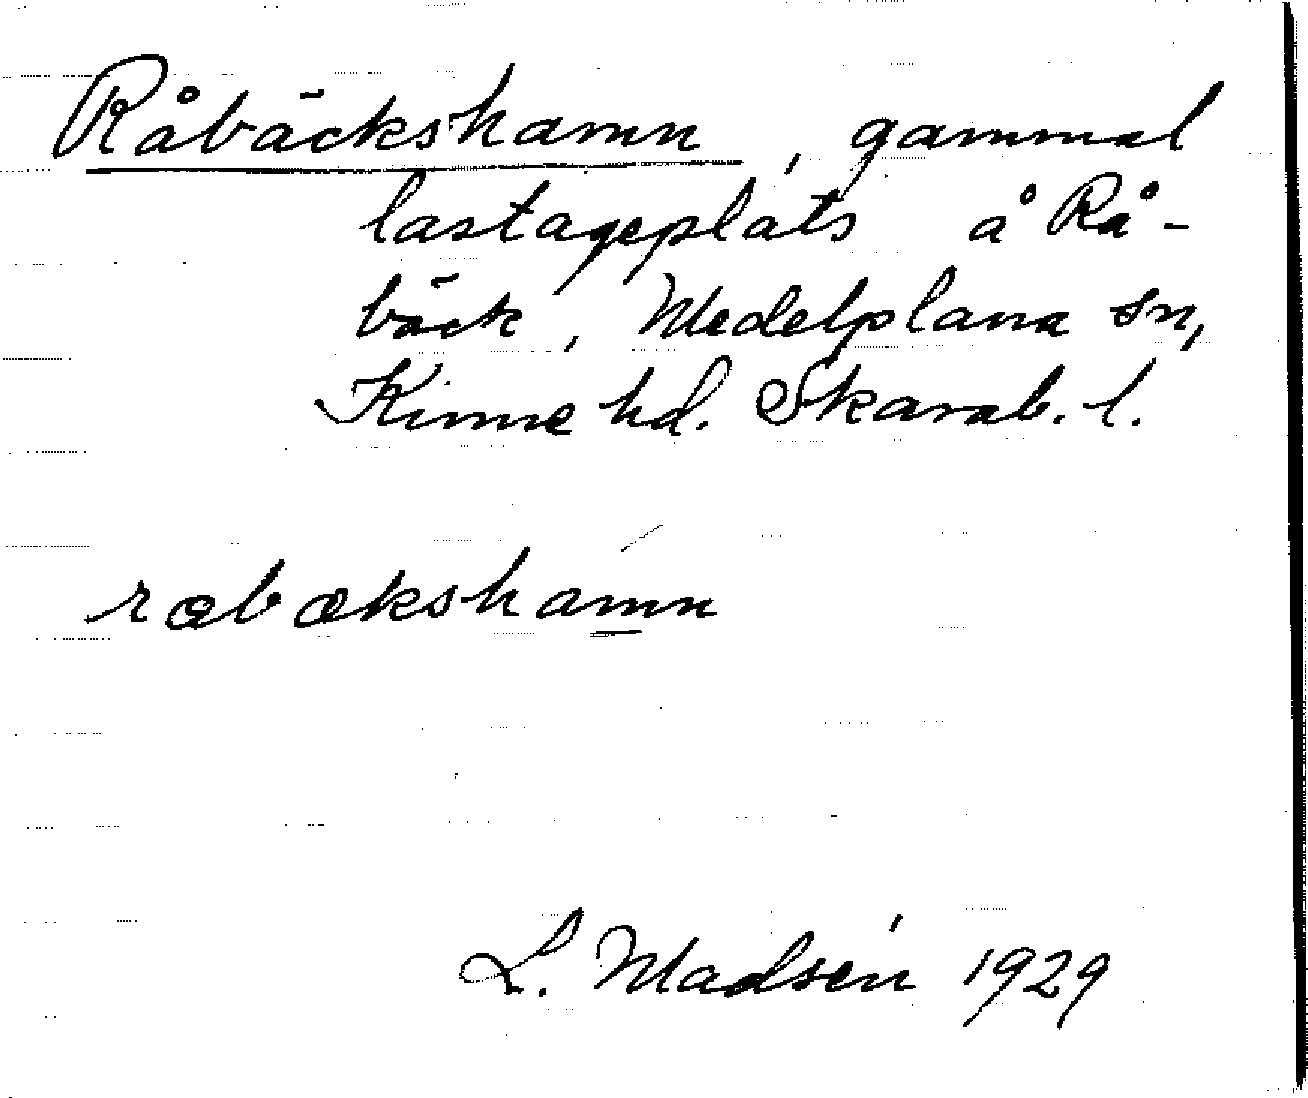 Råbäckshamn, gammal
lastageplats å Rå-
bäck, Medelplana sn,
Kinne hd. Skarab. l.
rabækshamn
L. Madsén 1929